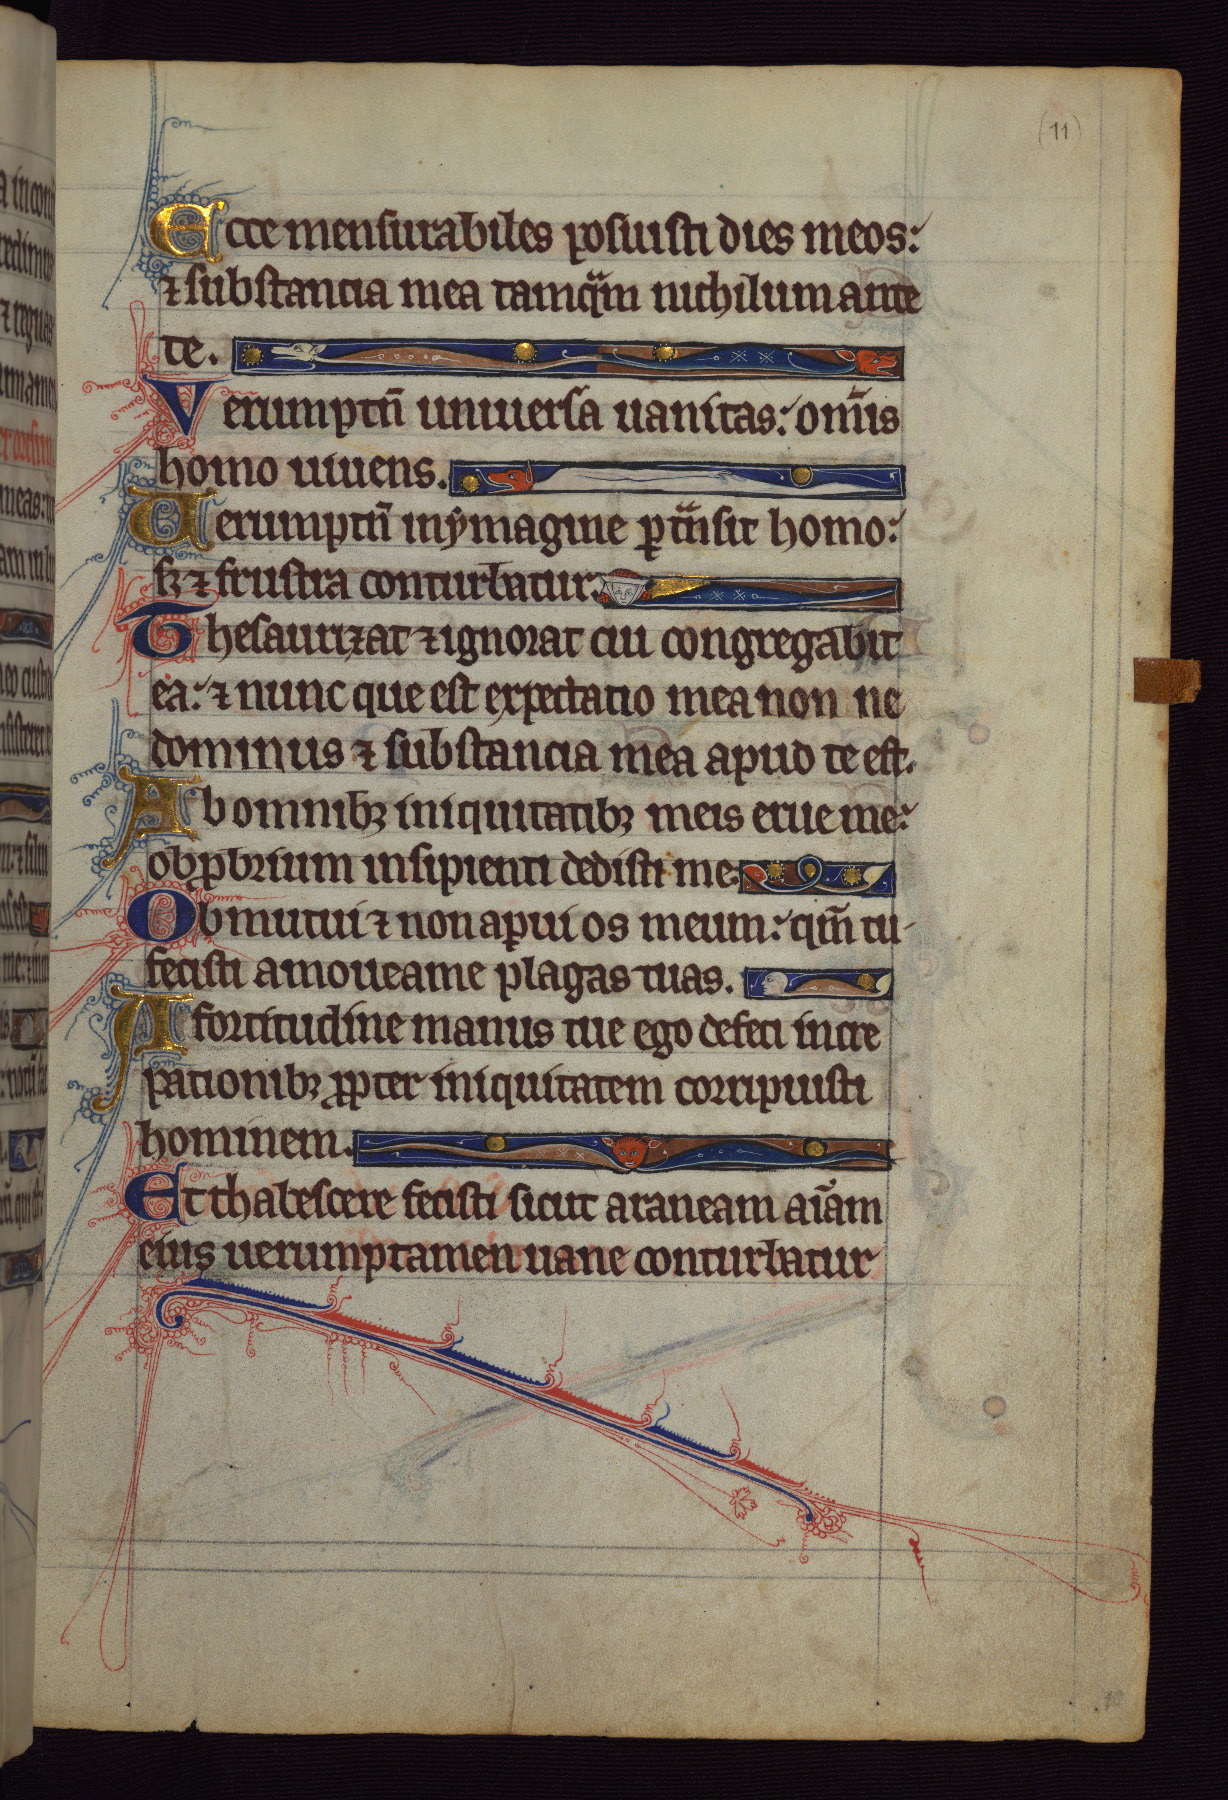 (11)
Ecce mensurabiles posuisti dies meos:
⁊ substancia mea tamqᵃm nichilum ante
te.
Verumptñ uniuersa uanitas: om̃is
homo uiuens.
Uerumptñ in ẏmagine ꝑtᵃnsit homo:
sꝫ ⁊ frustra conturbatur.
Thesaurizat ⁊ ignorat cui congregabit
ea: ⁊ nunc que est expectatio mea non ne
dominus ⁊ substancia mea apud te est.
Ab omnibꝫ iniquitatibꝫ meis erue me:
obꝓbrium insipienti dedisti me.
Obmutui ⁊ non aꝑui os meum: qm̃ tu
fecisti amoue a me plagas tuas.
A fortitudine manus tue ego defeci incre
pationibꝫ ꝓpter iniquitatem corripuisti
hominem.
Et thabescere fecisti sicut araneam aĩam
eius uerumptamen uane conturbatur